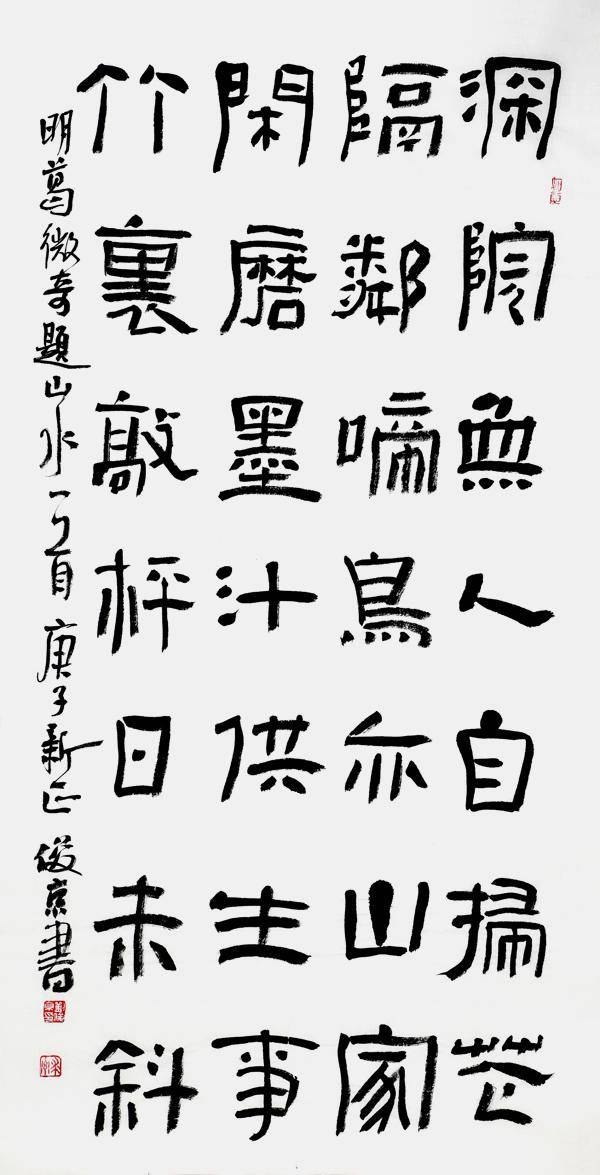 深院無人自掃花
隔鄰啼鳥亦山家
閑磨墨汁供生事
竹裏敲枰日未斜
明葛微奇題山水一首 庚子新正 俊京書